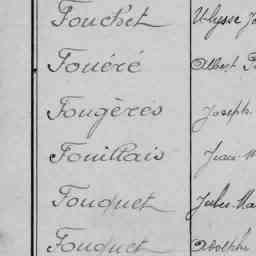 Fouchet Ulysse
Fouéré Albert
Fougères Joseph
Fouillais Jean
Fouquet Jules
Fouquet Adolphe